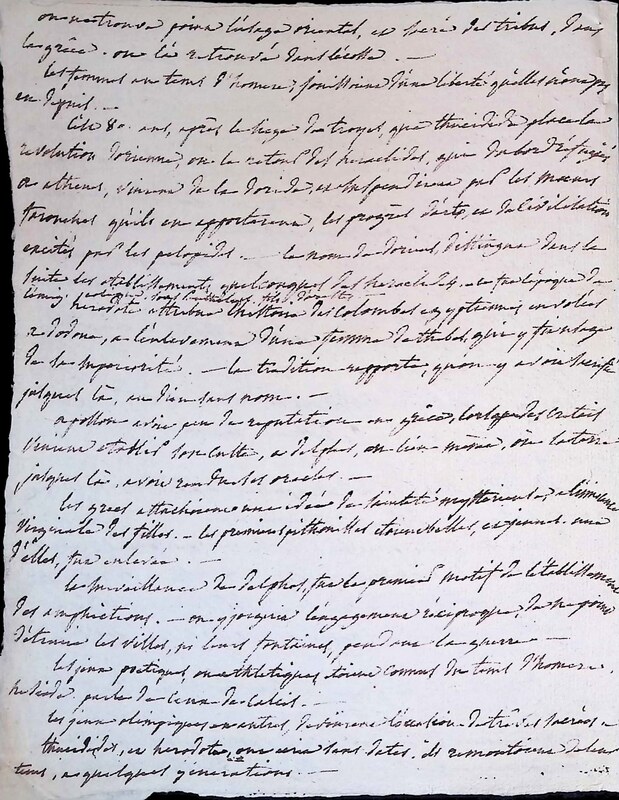 on ne trouve point l'usage oriental, et sacré des tribus, dans
la grèce. on l'a retrouvé dans l'écosse. —
les femmes au tems d'homère, jouissoient d'une liberté qu'elles n'ont pas
eu depuis. —
c'est 80. ans, après le siège de troyes, que thucidide place la
révolution dorienne, ou le retour des héraclides, qui d'abord réfugiés
a athènes, vinrent de la doride, et suspendirent par les moeurs
farouches qu'ils en apportèrent, les progrès d'arts, et de civilisation
excités par les pelopides. — le nom de doriens, distingua dans la
suite les établissements quelconques des héraclides. — c'est l'époque de
hérodote attribue l'histoire des colombes egyptiennes envolées
a dodone, a l'enlevement d'une femme de thebes, qui y fut
de la superiorité. — la tradition rapporte, qu'on y avoit sacrifié
jusques là, au dieu sans nom. —
apollon avoit peu de reputation en grèce, lorsque des cretois
vinrent établir son culte, a delphes, au lieu même, où la terre
jusques là, avoit rendu les oracles. —
les grecs attachèrent une idée de sainteté mysterieuse a
virginale des filles. — les premières pithonisses étoient belles, et jeunes. une
d'elles, fut enlevée. —
la surveillance de delphes, fut le premier motif de l'établissement
des amphictions. — on y joignit l'engagement réciproque, de ne point
détruire les villes, ni leurs fontaines, pendant la guerre —
les jeux poetiques, ou athletiques étoient connus du tems d'homère.
hésiode parle de ceux de calcis. —
les jeux olympiques et autres, devinrent l'occasion de trêves sacrées. —
thucidide, et hérodote, ont écrit sans dates. ils remontèrent de leur
tems, a quelques générations. —